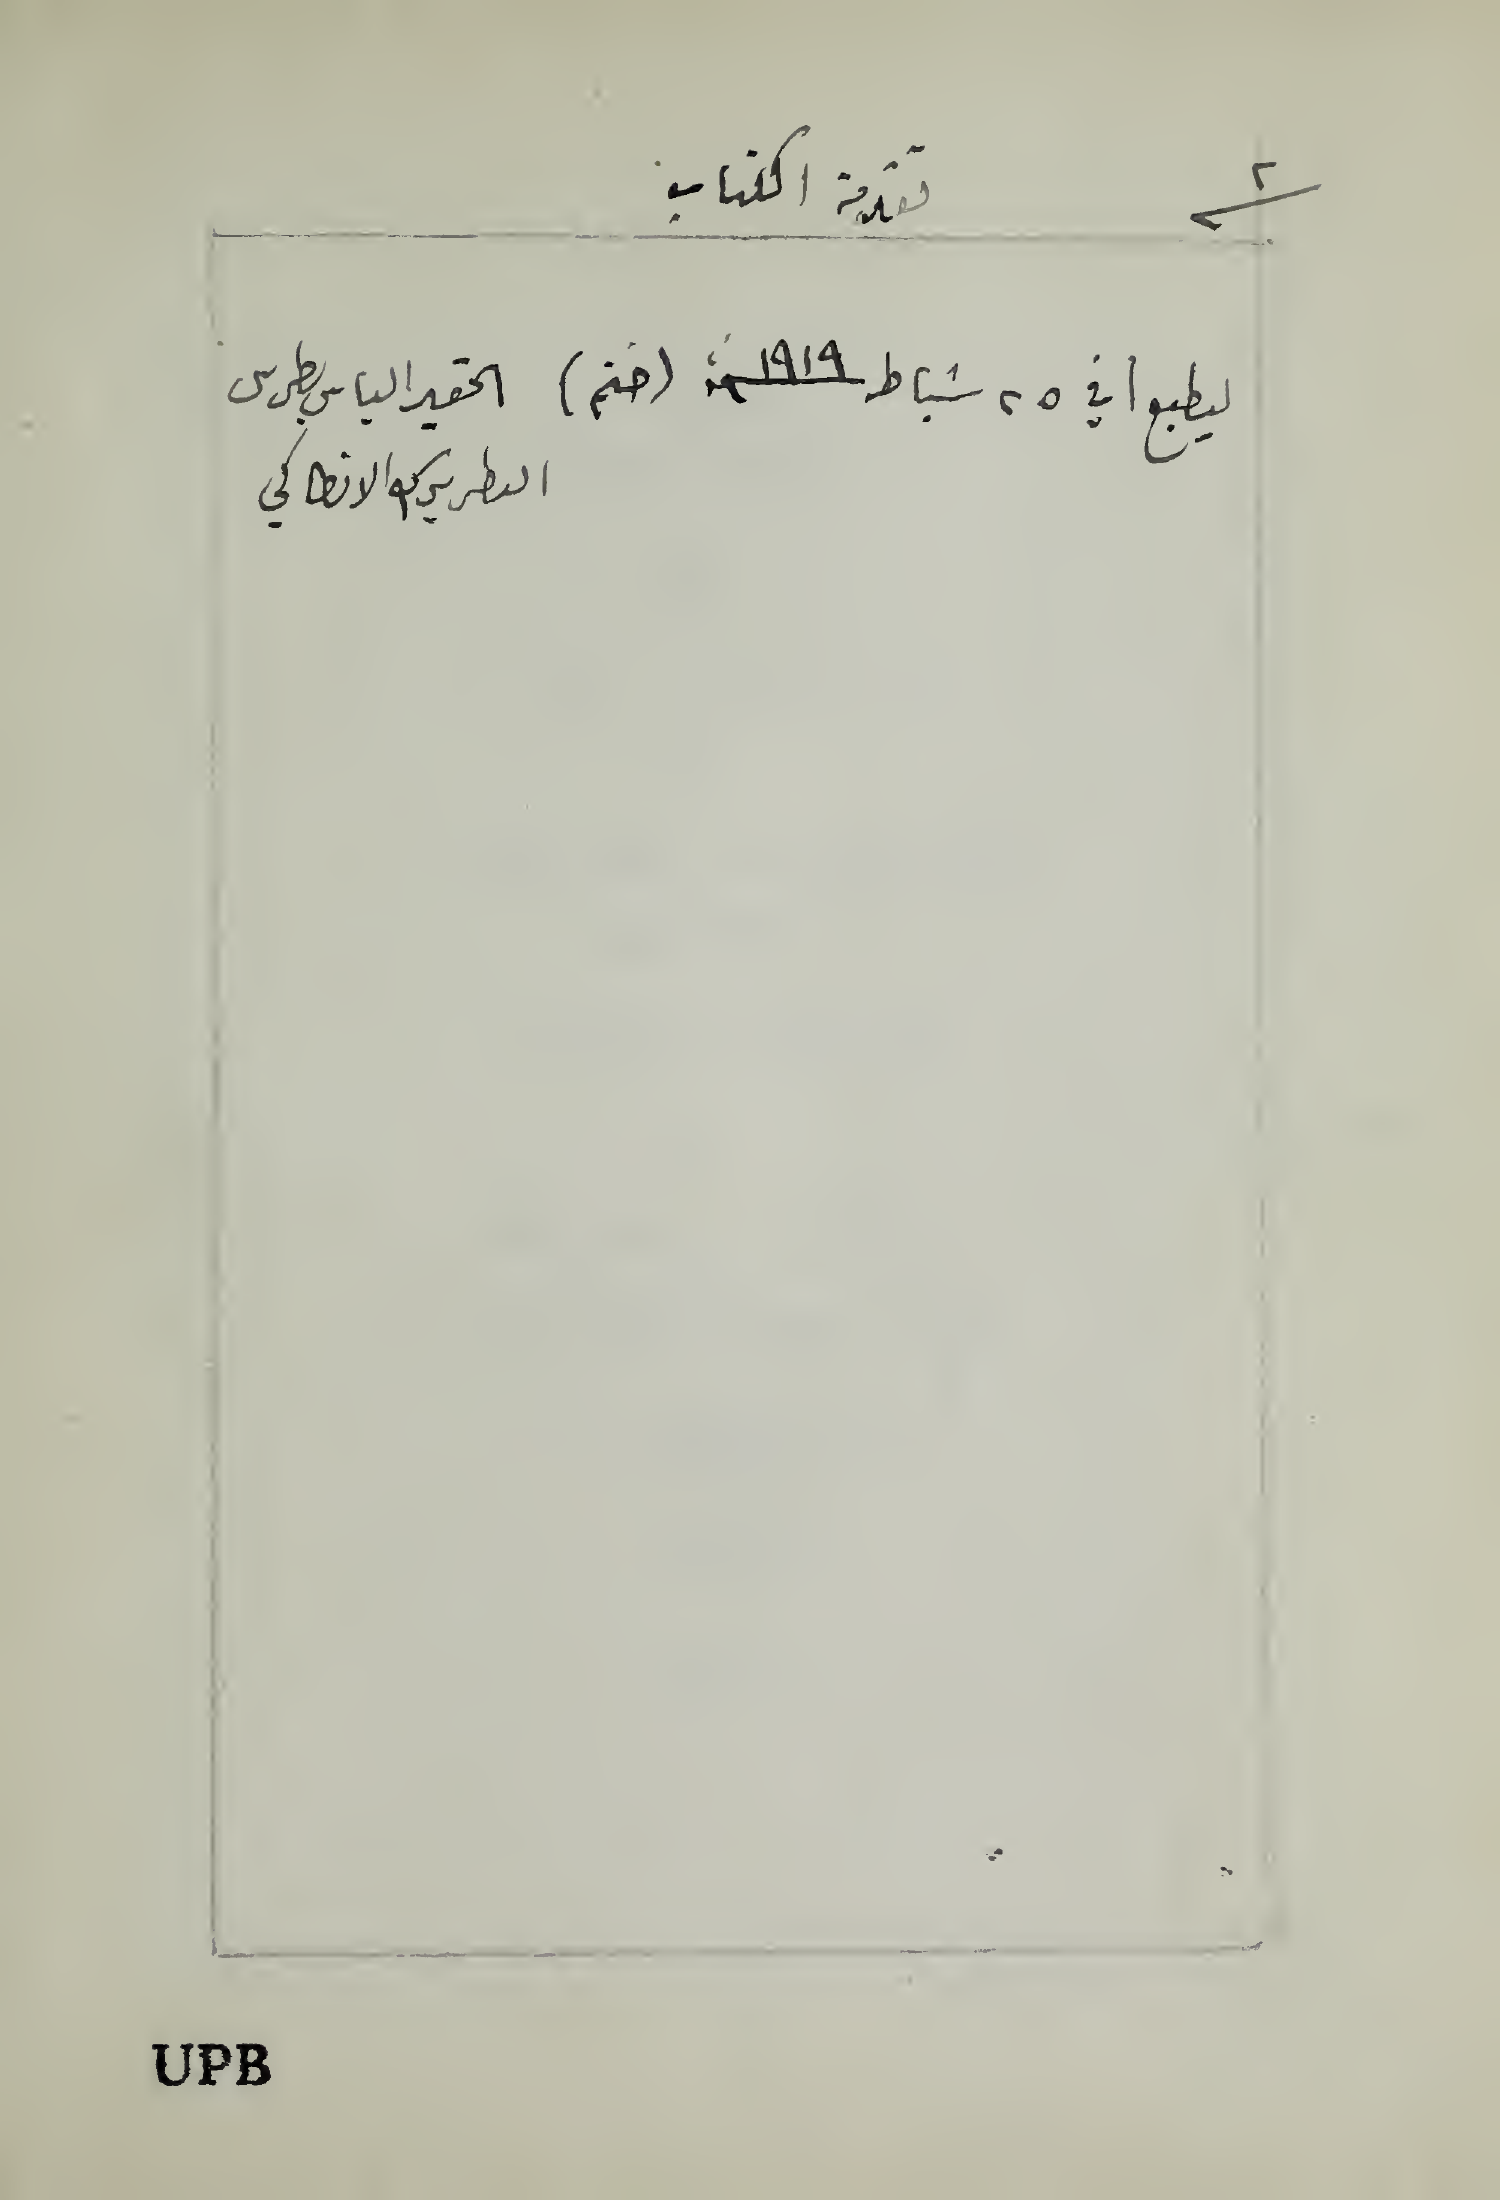 ٢
تقدمة الكتاب
ليطبع أ في ٢٥ شباط سنة ١٩١٩ (ختم) الحقير الياس بطرس
البطريرك الانطاكي
UPB